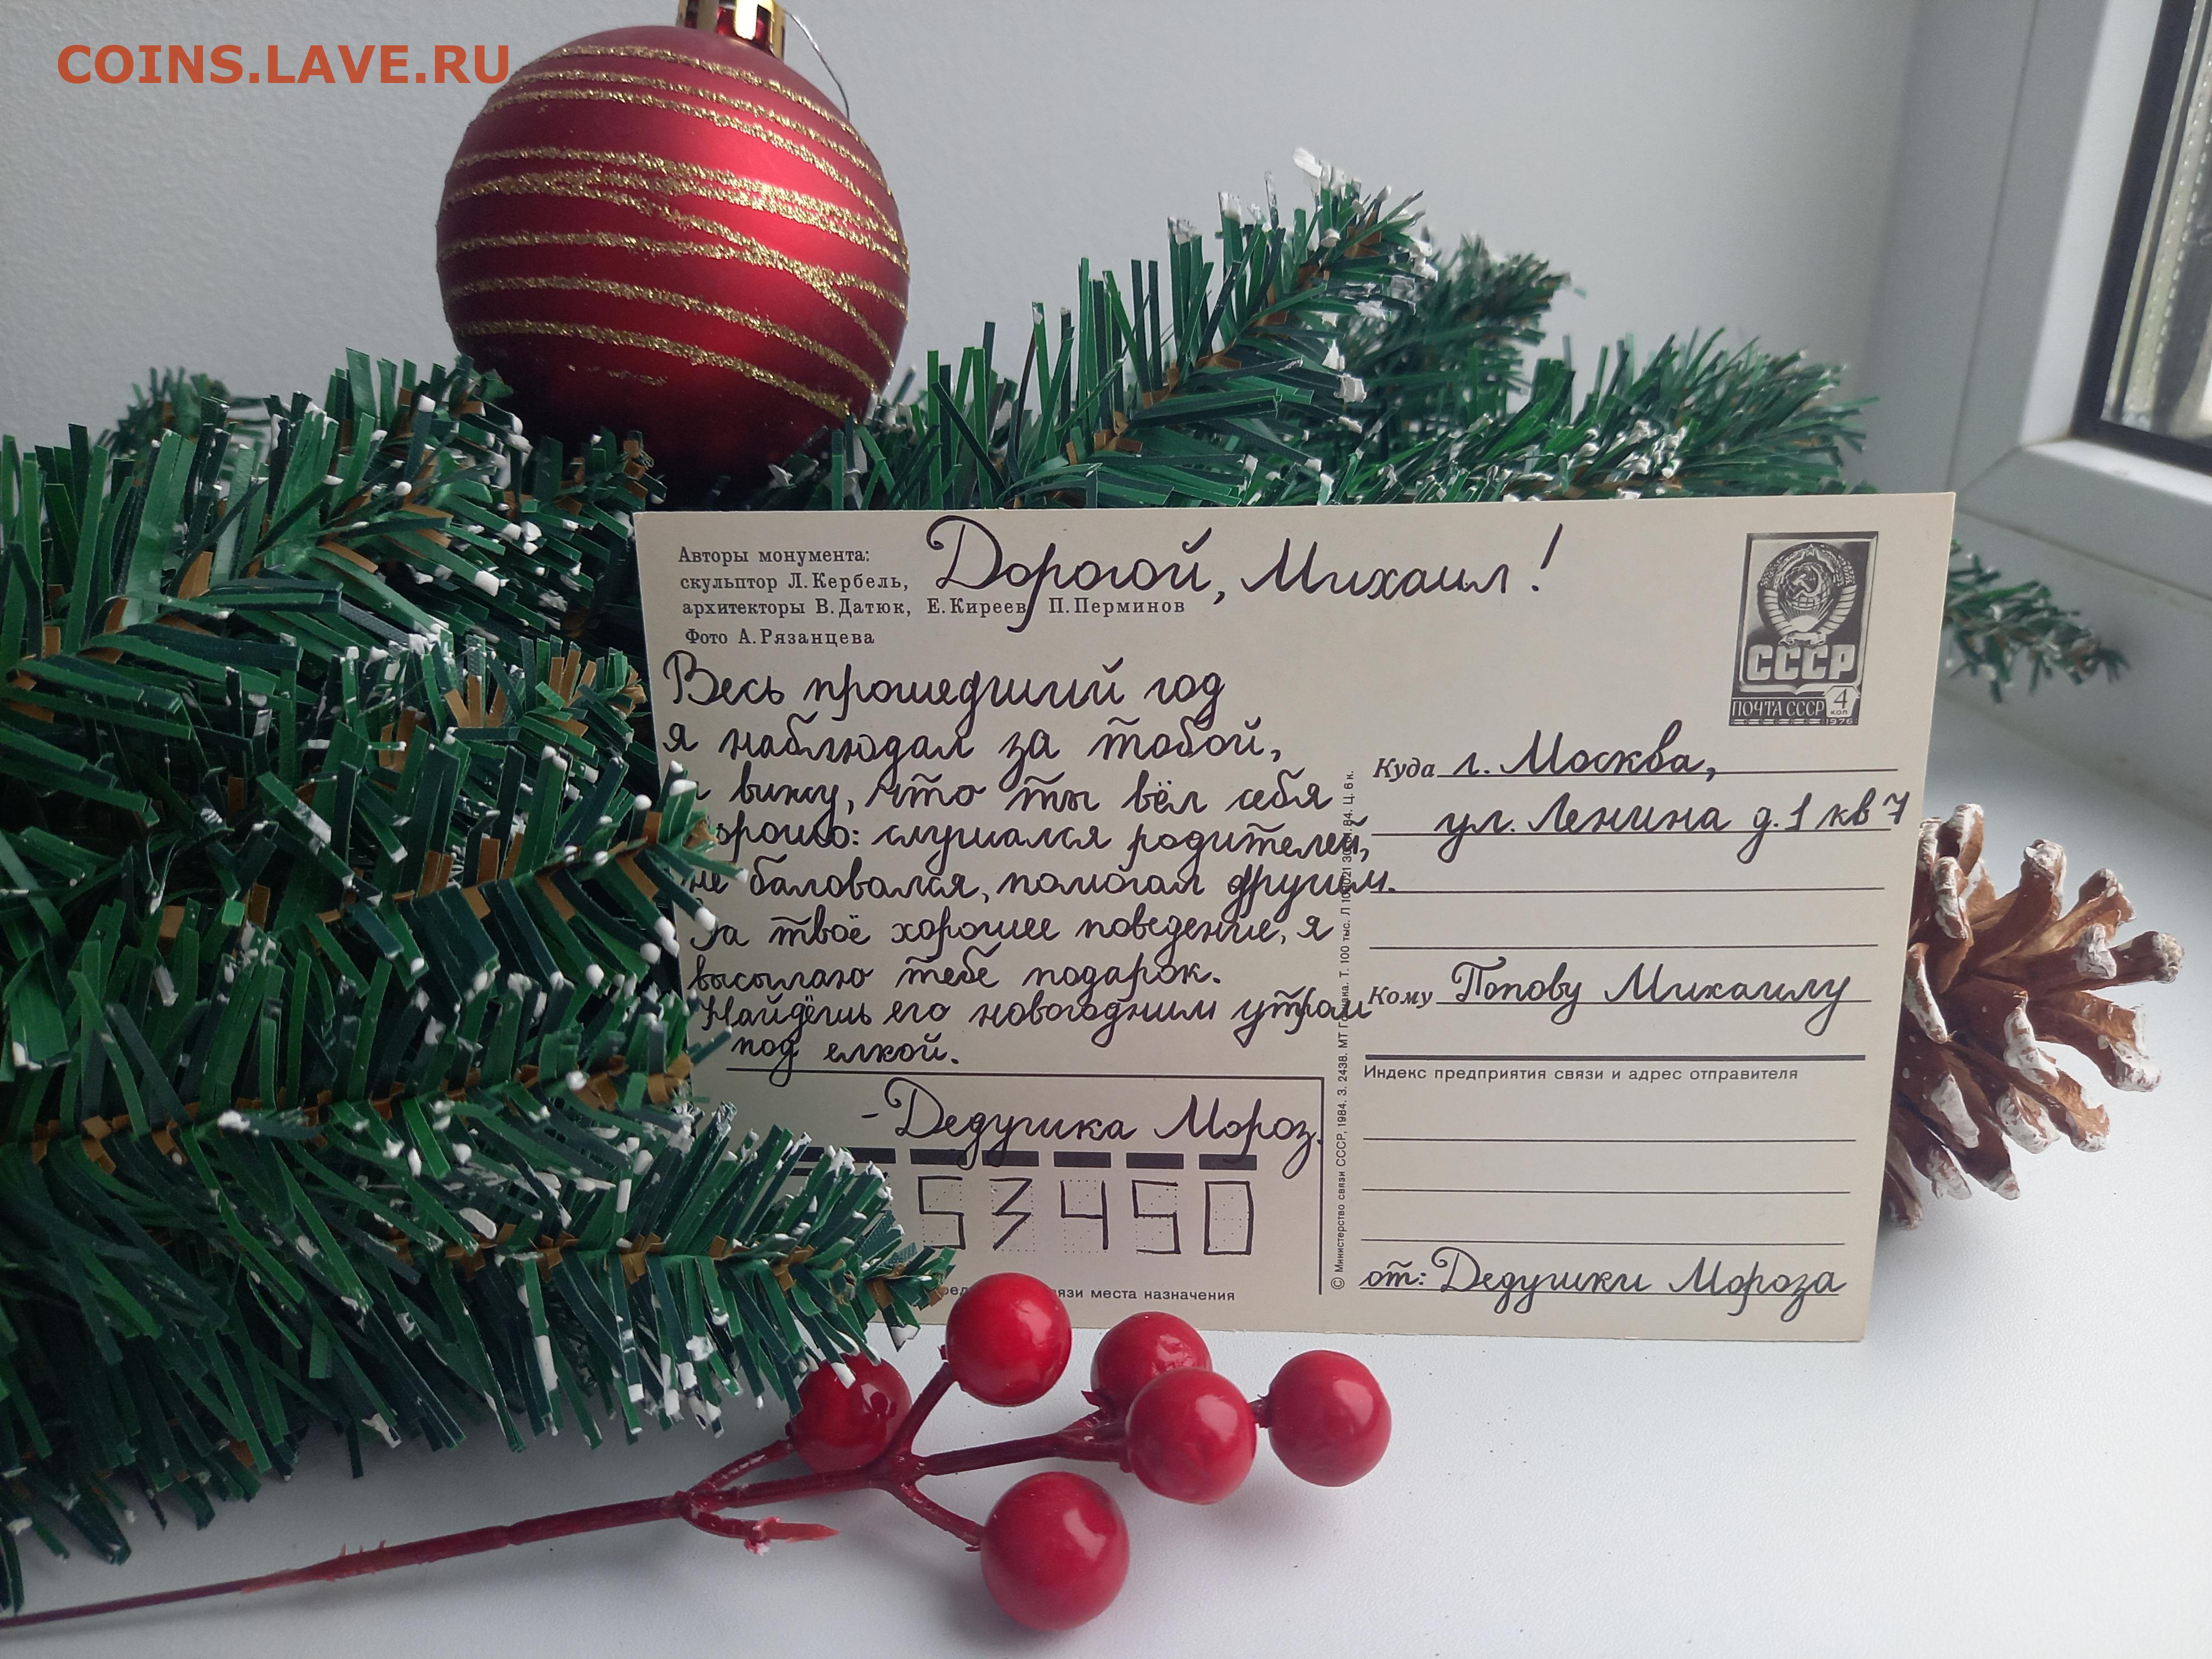 COINS.LAVE.RU
Авторы монумента:
скульптор Л. Кербель,
архитекторы В. Датюк, Е. Киреев, П. Перминов
Фото А. Рязанцева
Дорогой, Михаил!
Весь прошедший год
я наблюдал за тобой,
вижу, что ты вёл себя
хорошо: слушался родителей,
не баловался, помогал другим.
За твоё хорошее поведение, я
высылаю тебе подарок.
Найдёшь его новогодним утром
под елкой.
-Дедушка Мороз.
53450
связи места назначения
© Министерство связи СССР, 1984. З. 2438. МТ Гознака. Т. 100 тыс. Ц. 6 к.
СССР
ПОЧТА СССР 4 коп
1976
Куда г. Москва,
ул. Ленина д. 1 кв 7
Кому Попову Михаилу
Индекс предприятия связи и адрес отправителя
от: Дедушки Мороза